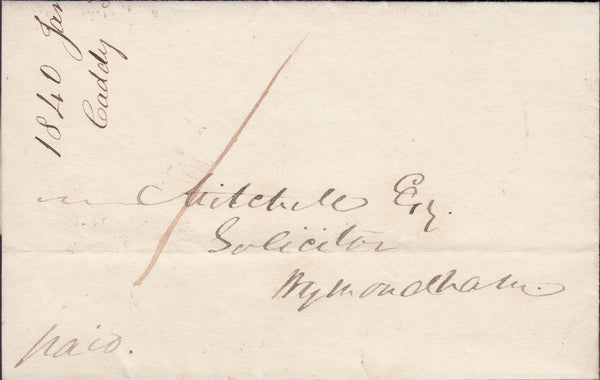 1840 Jan
Caddy
Mitchell Esq.
Solicitor
Wymondham
paid.